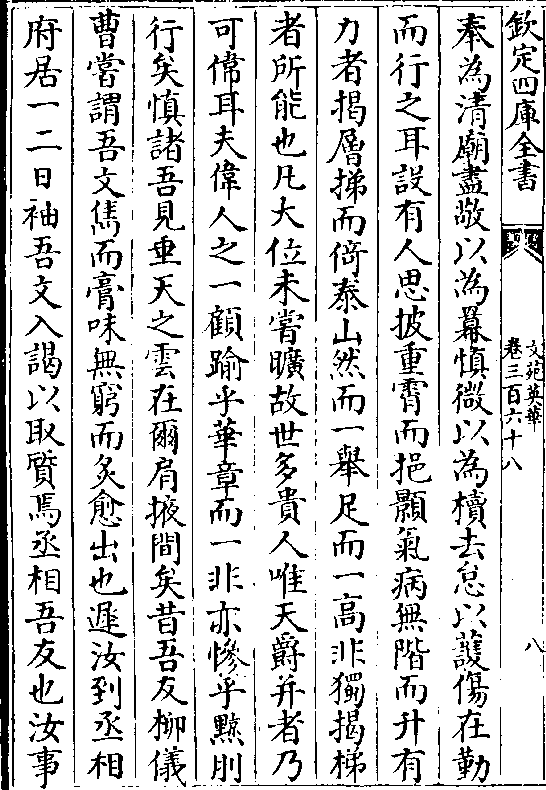 欽定四庫全書
文苑英華
卷三百六十八
八
奉為清廟盡敬以為冪慎微以為櫝去怠以護傷在勤
而行之耳設有人思披重霄而挹顥氣病無階而升有
力者揭層梯而倚泰山然而一舉足而一高非獨揭梯
者所能也凡大位未嘗曠故世多貴人唯天爵并者乃
可偉耳夫偉人之一顧踰乎華章而一非亦慘乎黥刖
行矣慎諸吾見垂天之雲在爾肩掖間矣昔吾友柳儀
曹嘗謂吾文雋而膏味無窮而炙愈出也遲汝到丞相
府居一二日袖吾文入謁以取質焉丞相吾友也汝事